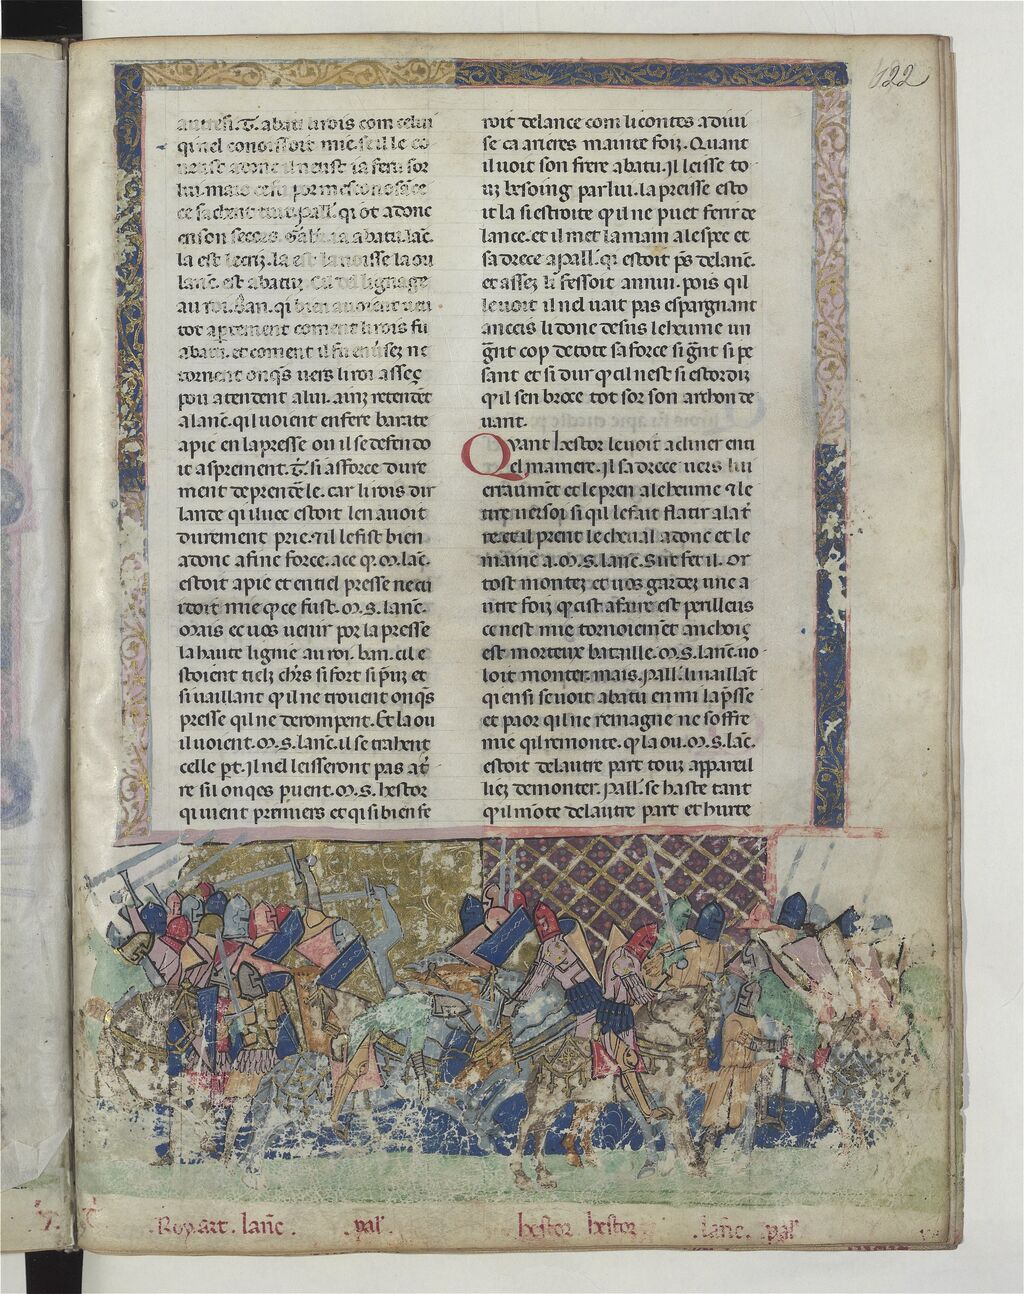 122
autresi. T. abati li rois com celui
qi nel conoissoit mie. se il le co
neust
lui. mais
qi ot adonc
en son secors. abatu. lac.
la est la la ou
lanc. est abatuz. lignage
au roi. Ban. qi bien auoient ueu
tot apertement coment li rois fu
abatu. et coment il fu
tornent onqs uers li roi assez
pou atendent a lui. ainz retendet
a lanc. qil uoient en fere barate
a pie en la presse ou il se defendo
it asprement. T. si afforce dure
ment de prendre le. car li rois dir
lande qi iluec estoit len auoit
durement prie. et il le fist bien
adonc a fine force. ace q. m. lac.
estoit a pie et en tiel presse ne cu
idoit mie q ce fust. m. s. lanc.
Mais ec uos uenir por la presse
la haute lignie au roi. ban. cil e
stoient tielz chrs si fort si puz et
si uaillant qil ne trouent onqs
presse qil ne derompent. Et la ou
il uoient. m. s. lanc. il se trahent
celle pt. il nel leisseront pas at
re sil onqes puent. m. s. hestor
qi uient premiers et qi si bien fe
roit de lance com li contes a diui
se ca arieres mainte foiz. Quant
il uoit son frere abatu. il leisse to
uz besoing par lui. la presse esto
it la si estroite qil ne puet ferir de
lance. et il met la main a lespee et
sadrece a pall. qi estoit ps de lanc.
et assez li fessoit annui. pois qil
le uoit il nel uait pas espargnant
anceis li done desus le heume un
gnt cop de tote sa force si gnt si pe
sant et si dur q cil nest si estordiz
qil sen broce tot sor son archon de
uant.
Quant hestor le uoit acliner en ti
el mainere. il sadrece uers lui
erraumet et le pren a le heume et le
tire uers soi si qil le fait flatir a la t
re. et il prent le cheual adonc et le
maine a. m. s. lanc. Sire fet il. or
tost montez et uos gardez une a
utre foiz q cist afaire est perilleus
ce nest mie tornoiemet anchoiz
est morteux bataille. m. s. lanc. uo
loit monter. mais. pall. li uaillat
qi ensi se uoit abatu en mi la psse
et paor qil ne remagne ne soffre
mie qil remonte. q la ou. m. s. lac.
estoit de lautre part touz appareil
liez de monter. pall. se haste tant
qil mote de lautre part et hurte
Roy. art. lanc. pal. hestor hestor lanc. pal